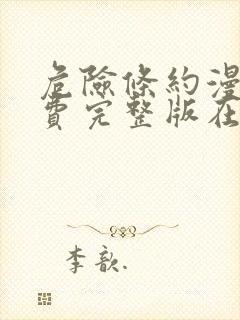 危險條約漫
費完整版在
李歆.